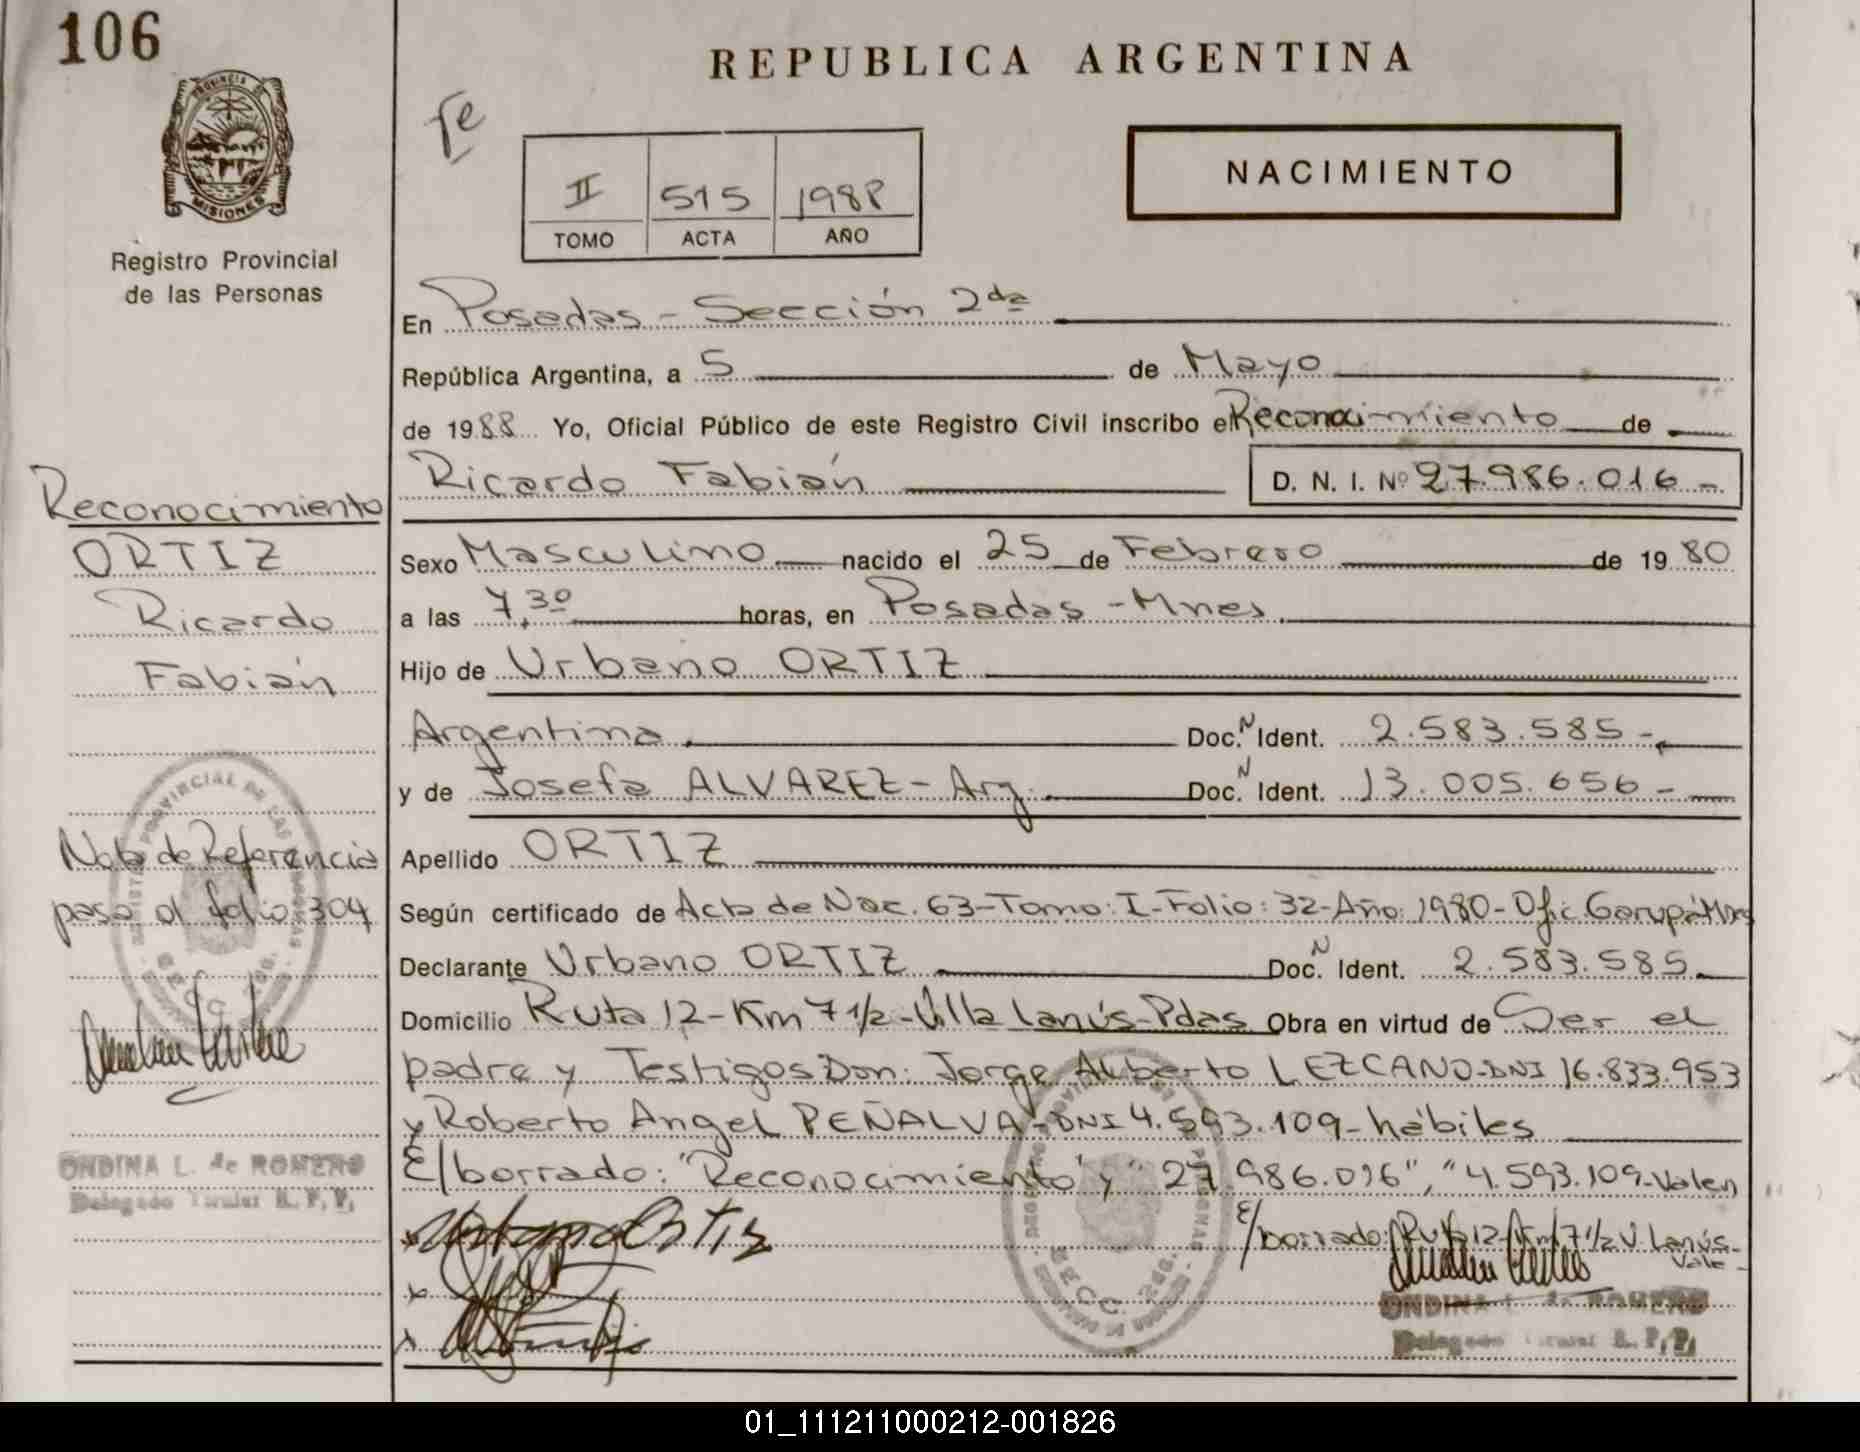 106
REPUBLICA ARGENTINA
PROVINCIA DE
MISIONES
Registro Provincial
de las Personas
fe
II 515 1988
TOMO ACTA AÑO
NACIMIENTO
En Posadas - Sección 2da
República Argentina, a 5 de Mayo
de 1988 Yo, Oficial Público de este Registro Civil inscribo el Reconocimiento de
Ricardo Fabián D. N. I. Nº 27.986.016-
Reconocimiento
ORTIZ
Ricardo
Fabián
Sexo Masculino nacido el 25 de Febrero de 1980
a las 7,30 horas, en Posadas - Mnes.
Hijo de Urbano ORTIZ
Argentina. Doc. N Ident. 2.583.585-
y de Josefa ALVAREZ - Arg. Doc. N Ident. 13.005.656-
Apellido ORTIZ
Nota de Referencia
pasa al folio 304
Según certificado de Acta de Nac. 63-Tomo: I-Folio: 32-Año: 1980-Ofic. Garupá-Mnes
Declarante Urbano ORTIZ Doc. N Ident. 2.583.585.
Domicilio Ruta 12-Km 7 1/2-Villa Lanús-Pdas Obra en virtud de Ser el
padre y Testigos Don: Jorge Alberto LEZCANO-DNI 16.833.953
y Roberto Angel PEÑALVA-DNI 4.593.109-hábiles
E/borrado: "Reconocimiento" y "27.986.016", "4.593.109-Valen
E/borrado: Ruta 12-Km 7 1/2 V. Lanús-
Vale-
Urbano Ortiz
ONDINA L. de ROMERO
Delegado Titular R. P. P.
SECC. 2da.
ONDINA L. de ROMERO
Delegado Titular R. P. P.
01_111211000212-001826